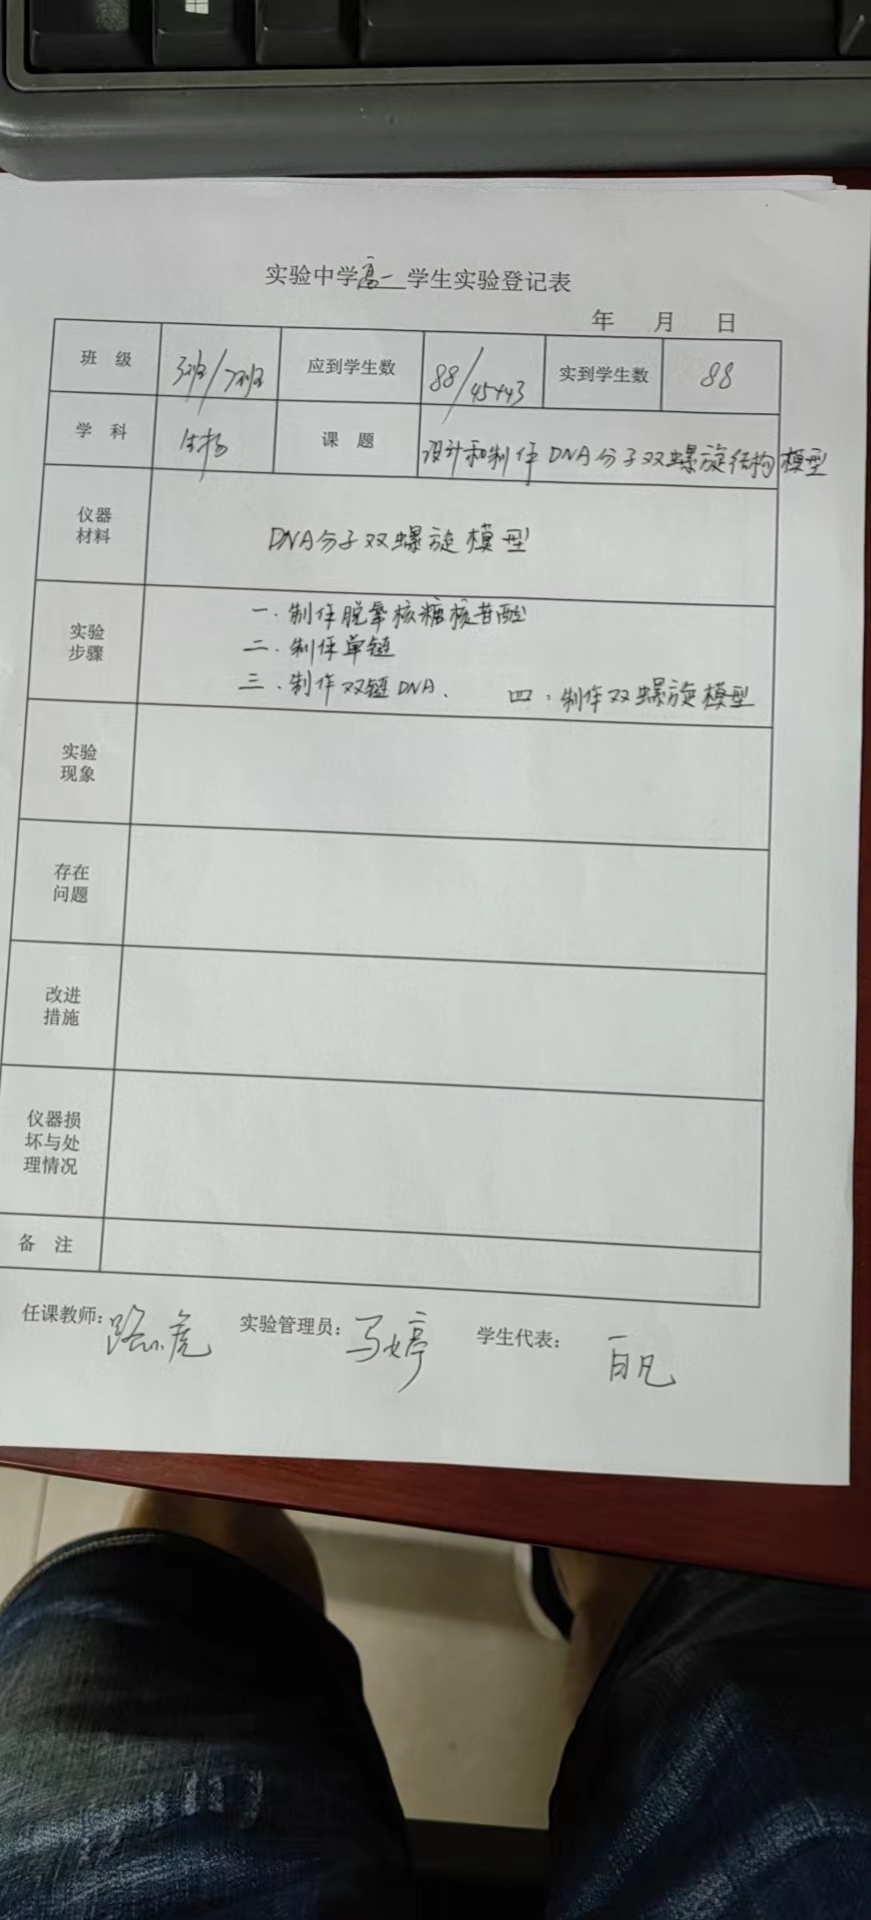 实验中学高一学生实验登记表
年 月 日
班 级 3班/7班 应到学生数 88/45+43 实到学生数 88
学 科 生物 课 题 设计和制作DNA分子双螺旋结构模型
仪器材料 DNA分子双螺旋模型
实验步骤
一.制作脱氧核糖核苷酸
二.制作单链
三.制作双链DNA. 四.制作双螺旋模型
实验现象
存在问题
改进措施
仪器损坏与处理情况
备 注
任课教师: 路小虎 实验管理员: 马婷 学生代表: 白凡